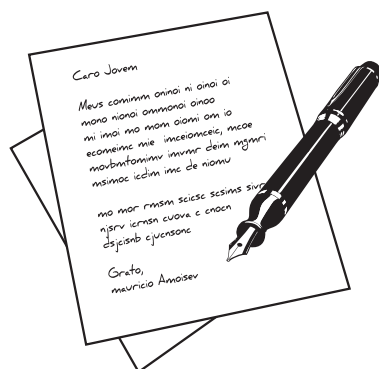 Caro Jovem
Meus comimm oninoi ni oinoi oi
mono nionoi ommonoi oinoo
mi imoi mo mom oiomi om io
ecomeimc mie imceiomceic, mcoe
movbmtomimv imvmr deim mgmri
msimoc icdim imc de niomu
mo mor rmsm scicsc scsims sivr
njsrv icrnsn cuova c cnocn
dsjcisnb cjucnsonc
Grato,
mauricio Amoisev